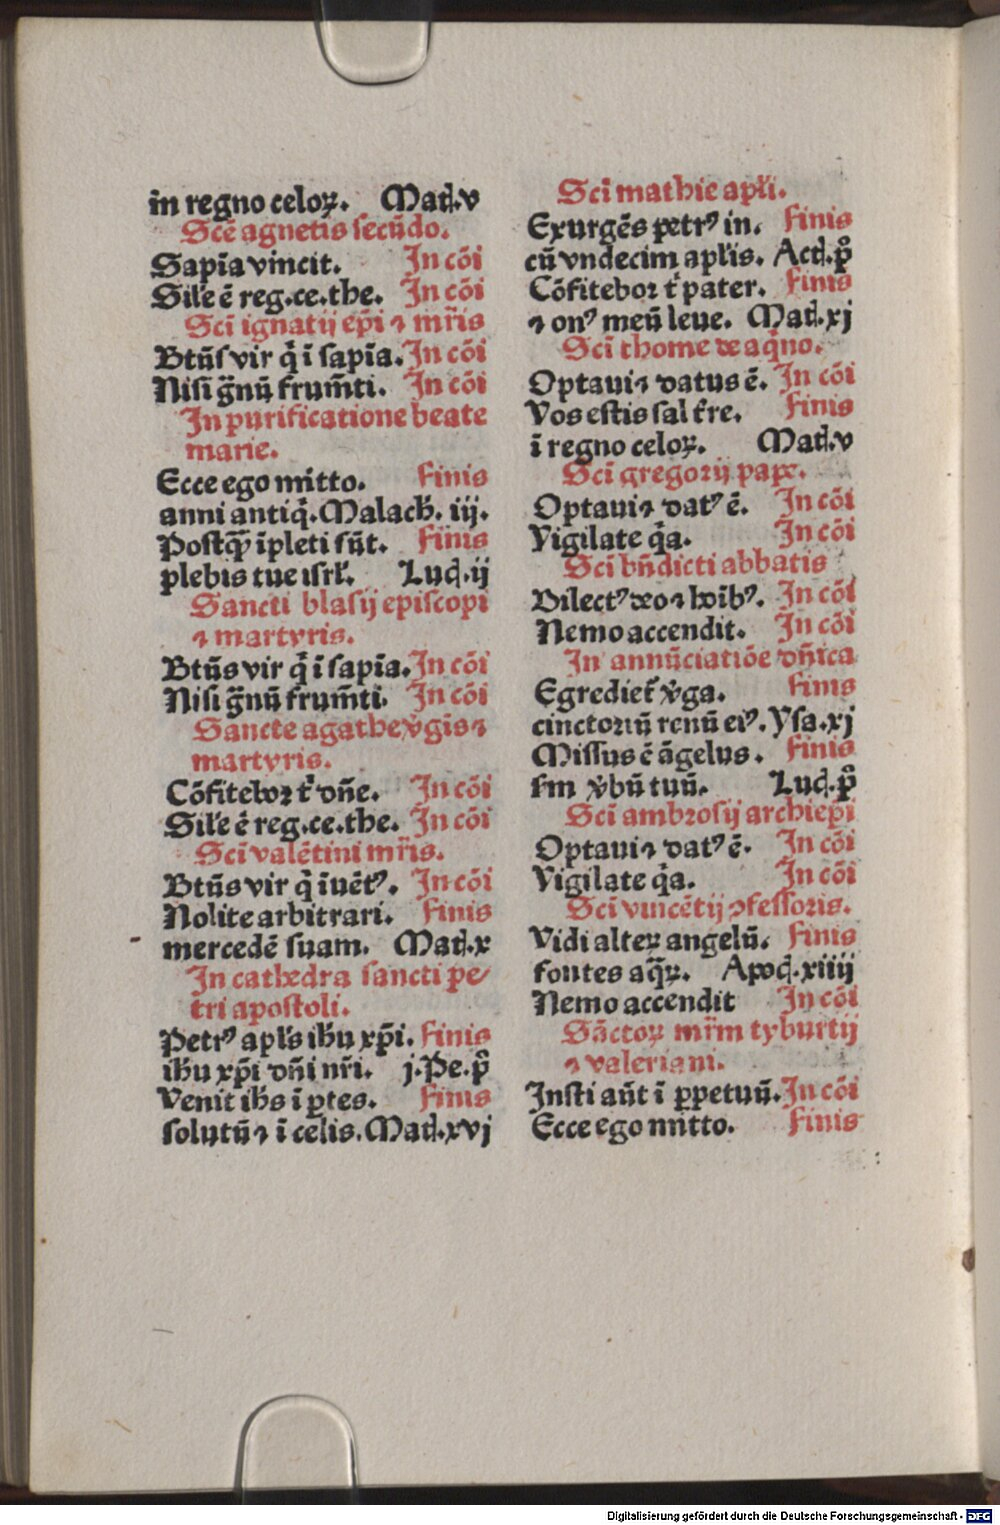 in regno celoꝝ. Mad.v
Scē agnetis ſecūdo.
Sapīa vincit. In cōi
Sil'e ē reg.ce.the. In cōi
Scī ignatij ep̄i ⁊ mr̄is
Btūs vir q̄ ī ſapīa. In cōi
Niſi gͣnū frum̄ti. In cōi
In purificatione beate
marie.
Ecce ego mitto. finis
anni antiq̄. Malach. iij.
Poſtqꝫ īpleti ſūt. finis
plebis tue iſrl'. Luc̄.ij
Sancti blaſij epiſcopi
⁊ martyris.
Btūs vir q̄ ī ſapīa. In cōi
Niſi gͣnū frum̄ti. In cōi
Sancte agathe v̄gīs ⁊
martyris.
Cōfitebor t' dn̄e. In cōi
Sil'e ē reg.ce.the. In cōi
Scī valētini mr̄is.
Btūs vir q̄ īuētꝰ. In cōi
Nolite arbitrari. finis
mercedē ſuam. Mad.x
In cathedra ſancti pe/
tri apoſtoli.
Petrꝰ apl's ih̄u xp̄i. finis
ih̄u xp̄i dn̄i nr̄i. j.Pe.pͦ
Venit ih̄s ī ꝑtes. finis
ſolutū ⁊ ī celis. Mad.xvj
Scī mathie apl'i.
Exurgēs petrꝰ in. finis
cū vndecim apl'is. Acd.pͦ
Cōfitebor t' pater. finis
⁊ onꝰ meū leue. Mad.xj
Scī thome de aq̄no.
Optaui ⁊ datus ē. In cōi
Vos eſtis ſal t're. finis
ī regno celoꝝ. Mad.v
Scī gregorij pape.
Optaui ⁊ datꝰ ē. In cōi
Vigilate q̄a. In cōi
Scī bn̄dicti abbatis
Dilectꝰ deo ⁊ hoībꝰ. In cōi
Nemo accendit. In cōi
In annūciatiōe dn̄ica
Egrediet' v̄ga. finis
cinctoriū renū eiꝰ. Yſa.xj
Miſſus ē āgelus. finis
ſm v̄bū tuū. Luc̄.pͦ
Scī ambroſij archiep̄i
Optaui ⁊ datꝰ ē. In cōi
Vigilate q̄a. In cōi
Scī vincētij ꝯfeſſoris.
Vidi alteꝝ angelū. finis
fontes aq̄ꝝ. Apoc̄.xiiij
Nemo accendit In cōi
Sāctoꝝ mr̄m tyburtij
⁊ valeriani.
Juſti aūt ī ꝑpetuū. In cōi
Ecce ego mitto. finis
Digitalisierung gefördert durch die Deutsche Forschungsgemeinschaft - DFG